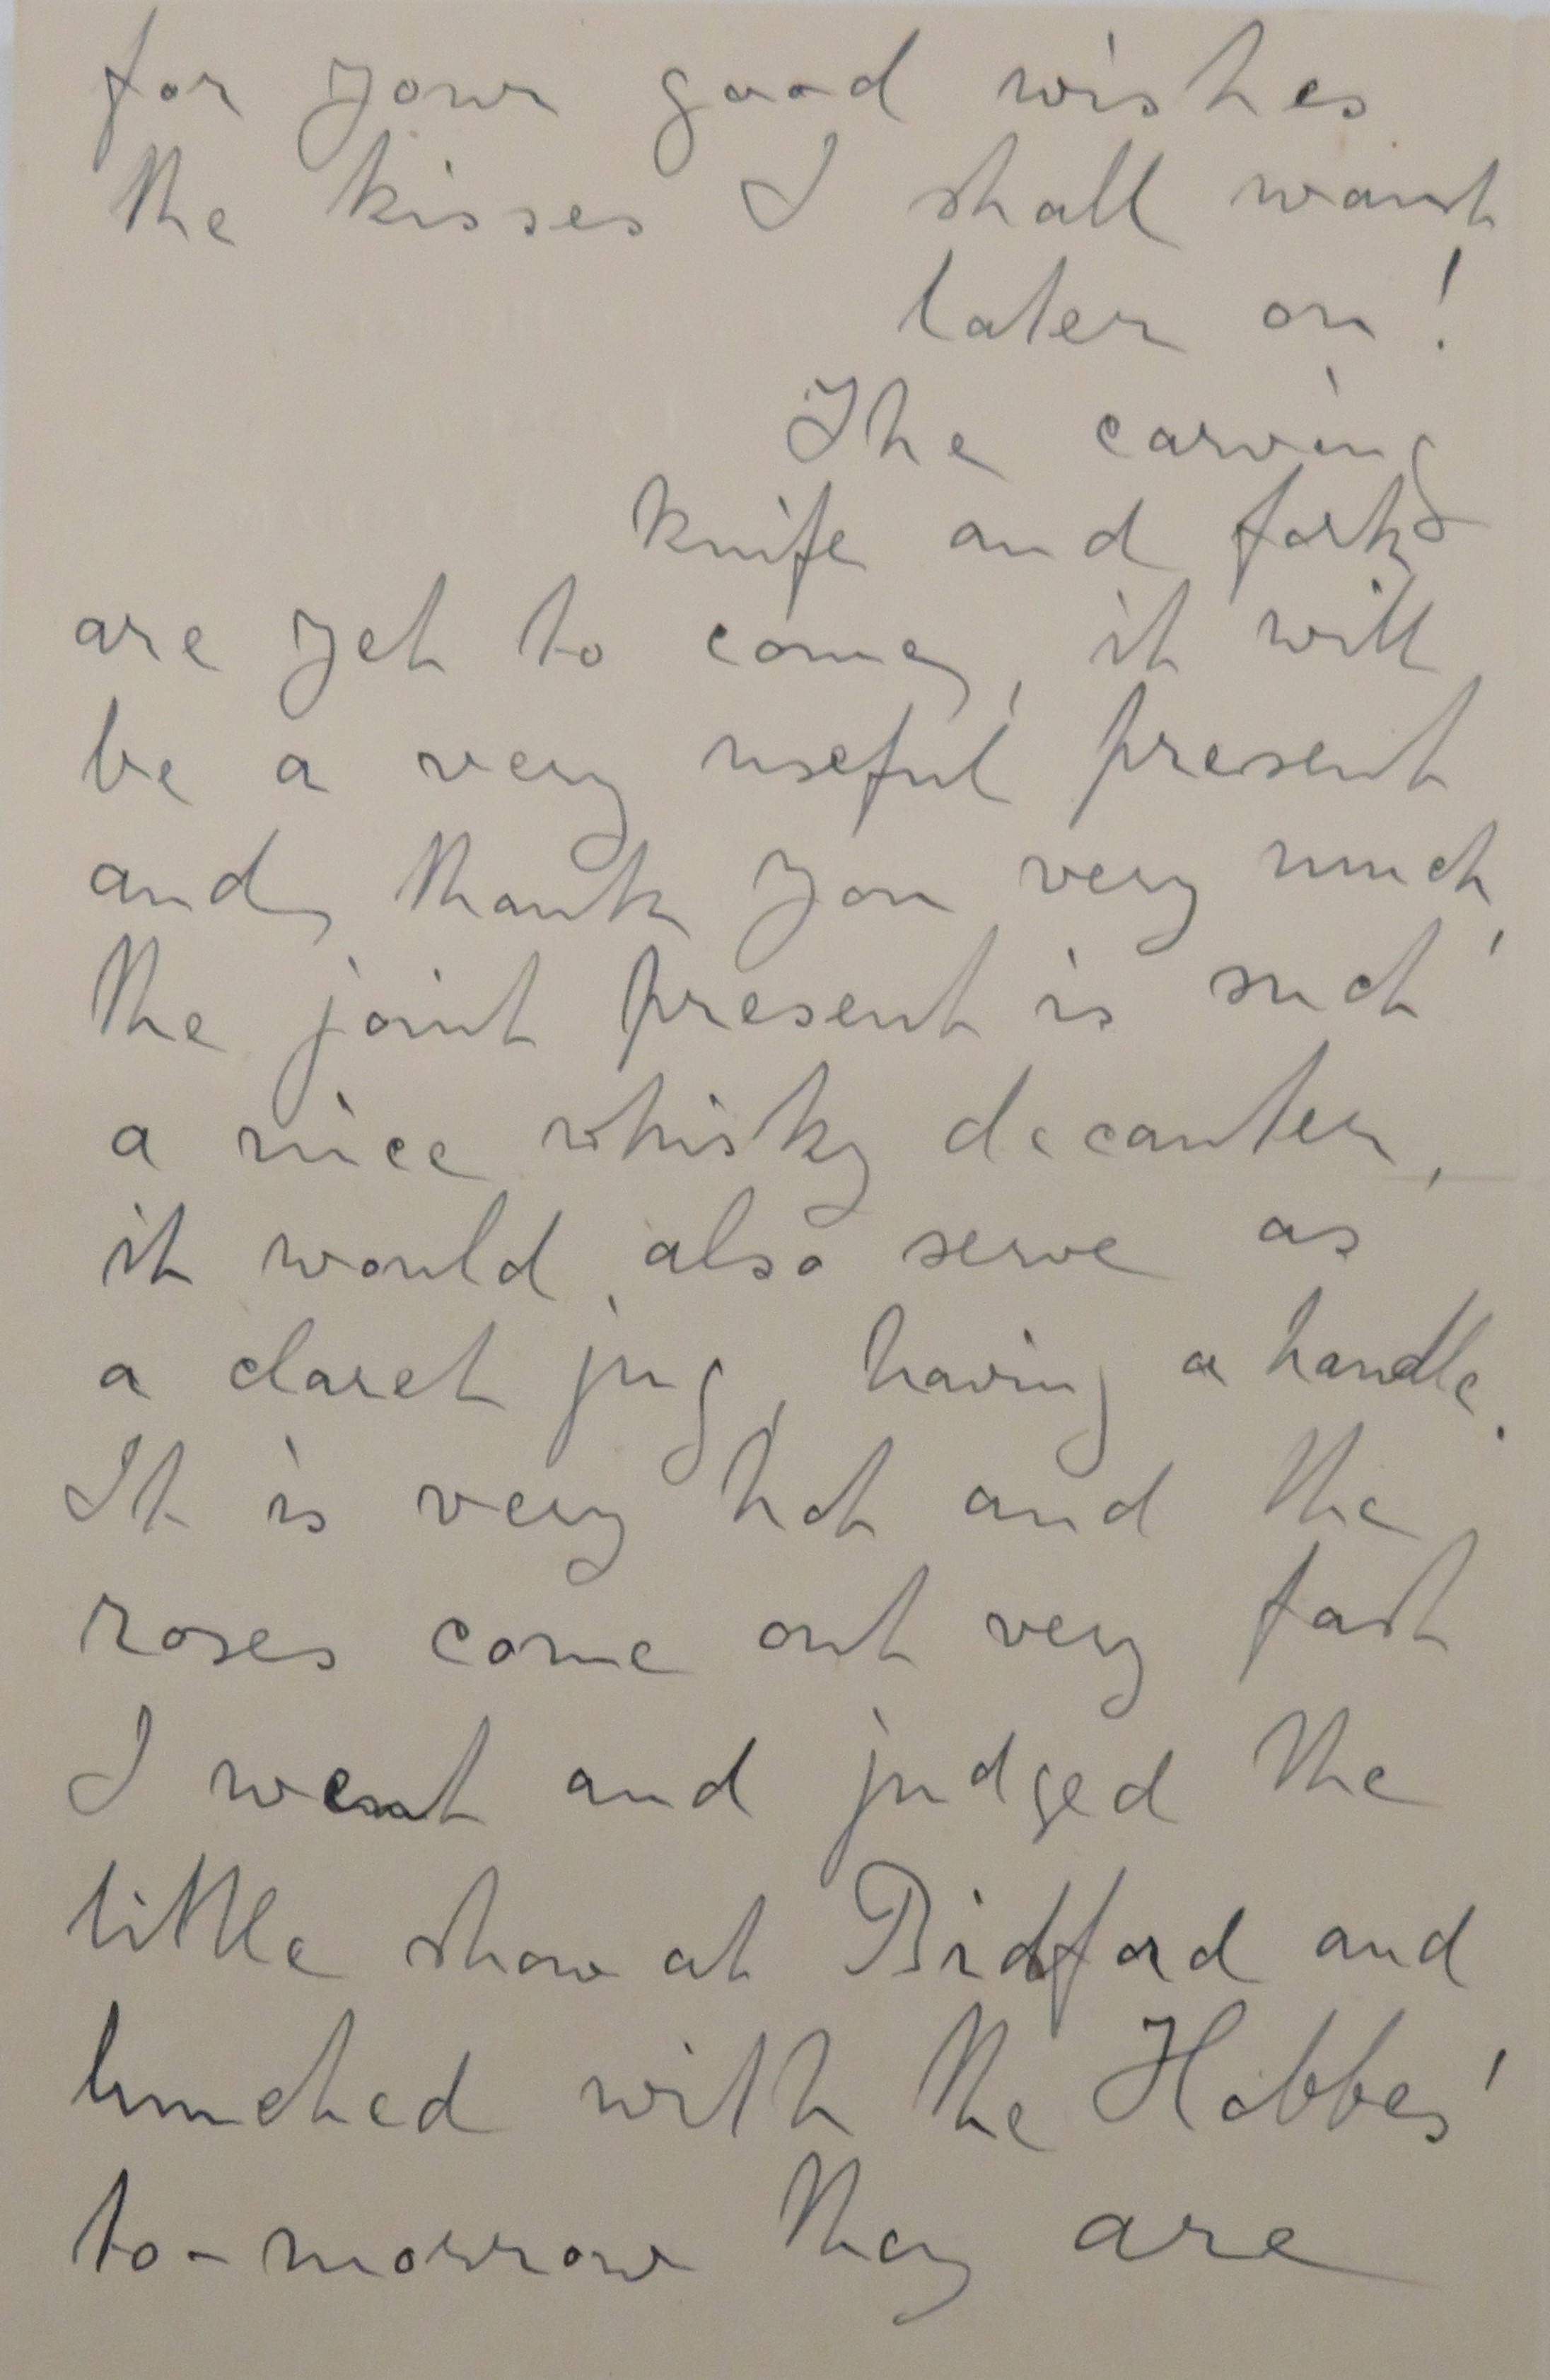 for your good wishes
the kisses I shall want
later on!
The carving
knife and fork
are yet to come, it will
be a very useful present
and, thank you very much,
the joint present is such
a nice whisky decanter,
it would also serve as
a claret jug, having a handle.
It is very hot and the
roses come out very fast
I went and judged the
little show at Bidford and
lunched with the Hobbes'
to-morrow they are